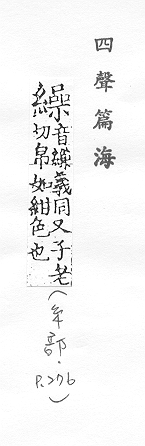 四聲篇海
繰音繅義同又子老
切帛如紺色也
(糸部.P.276)